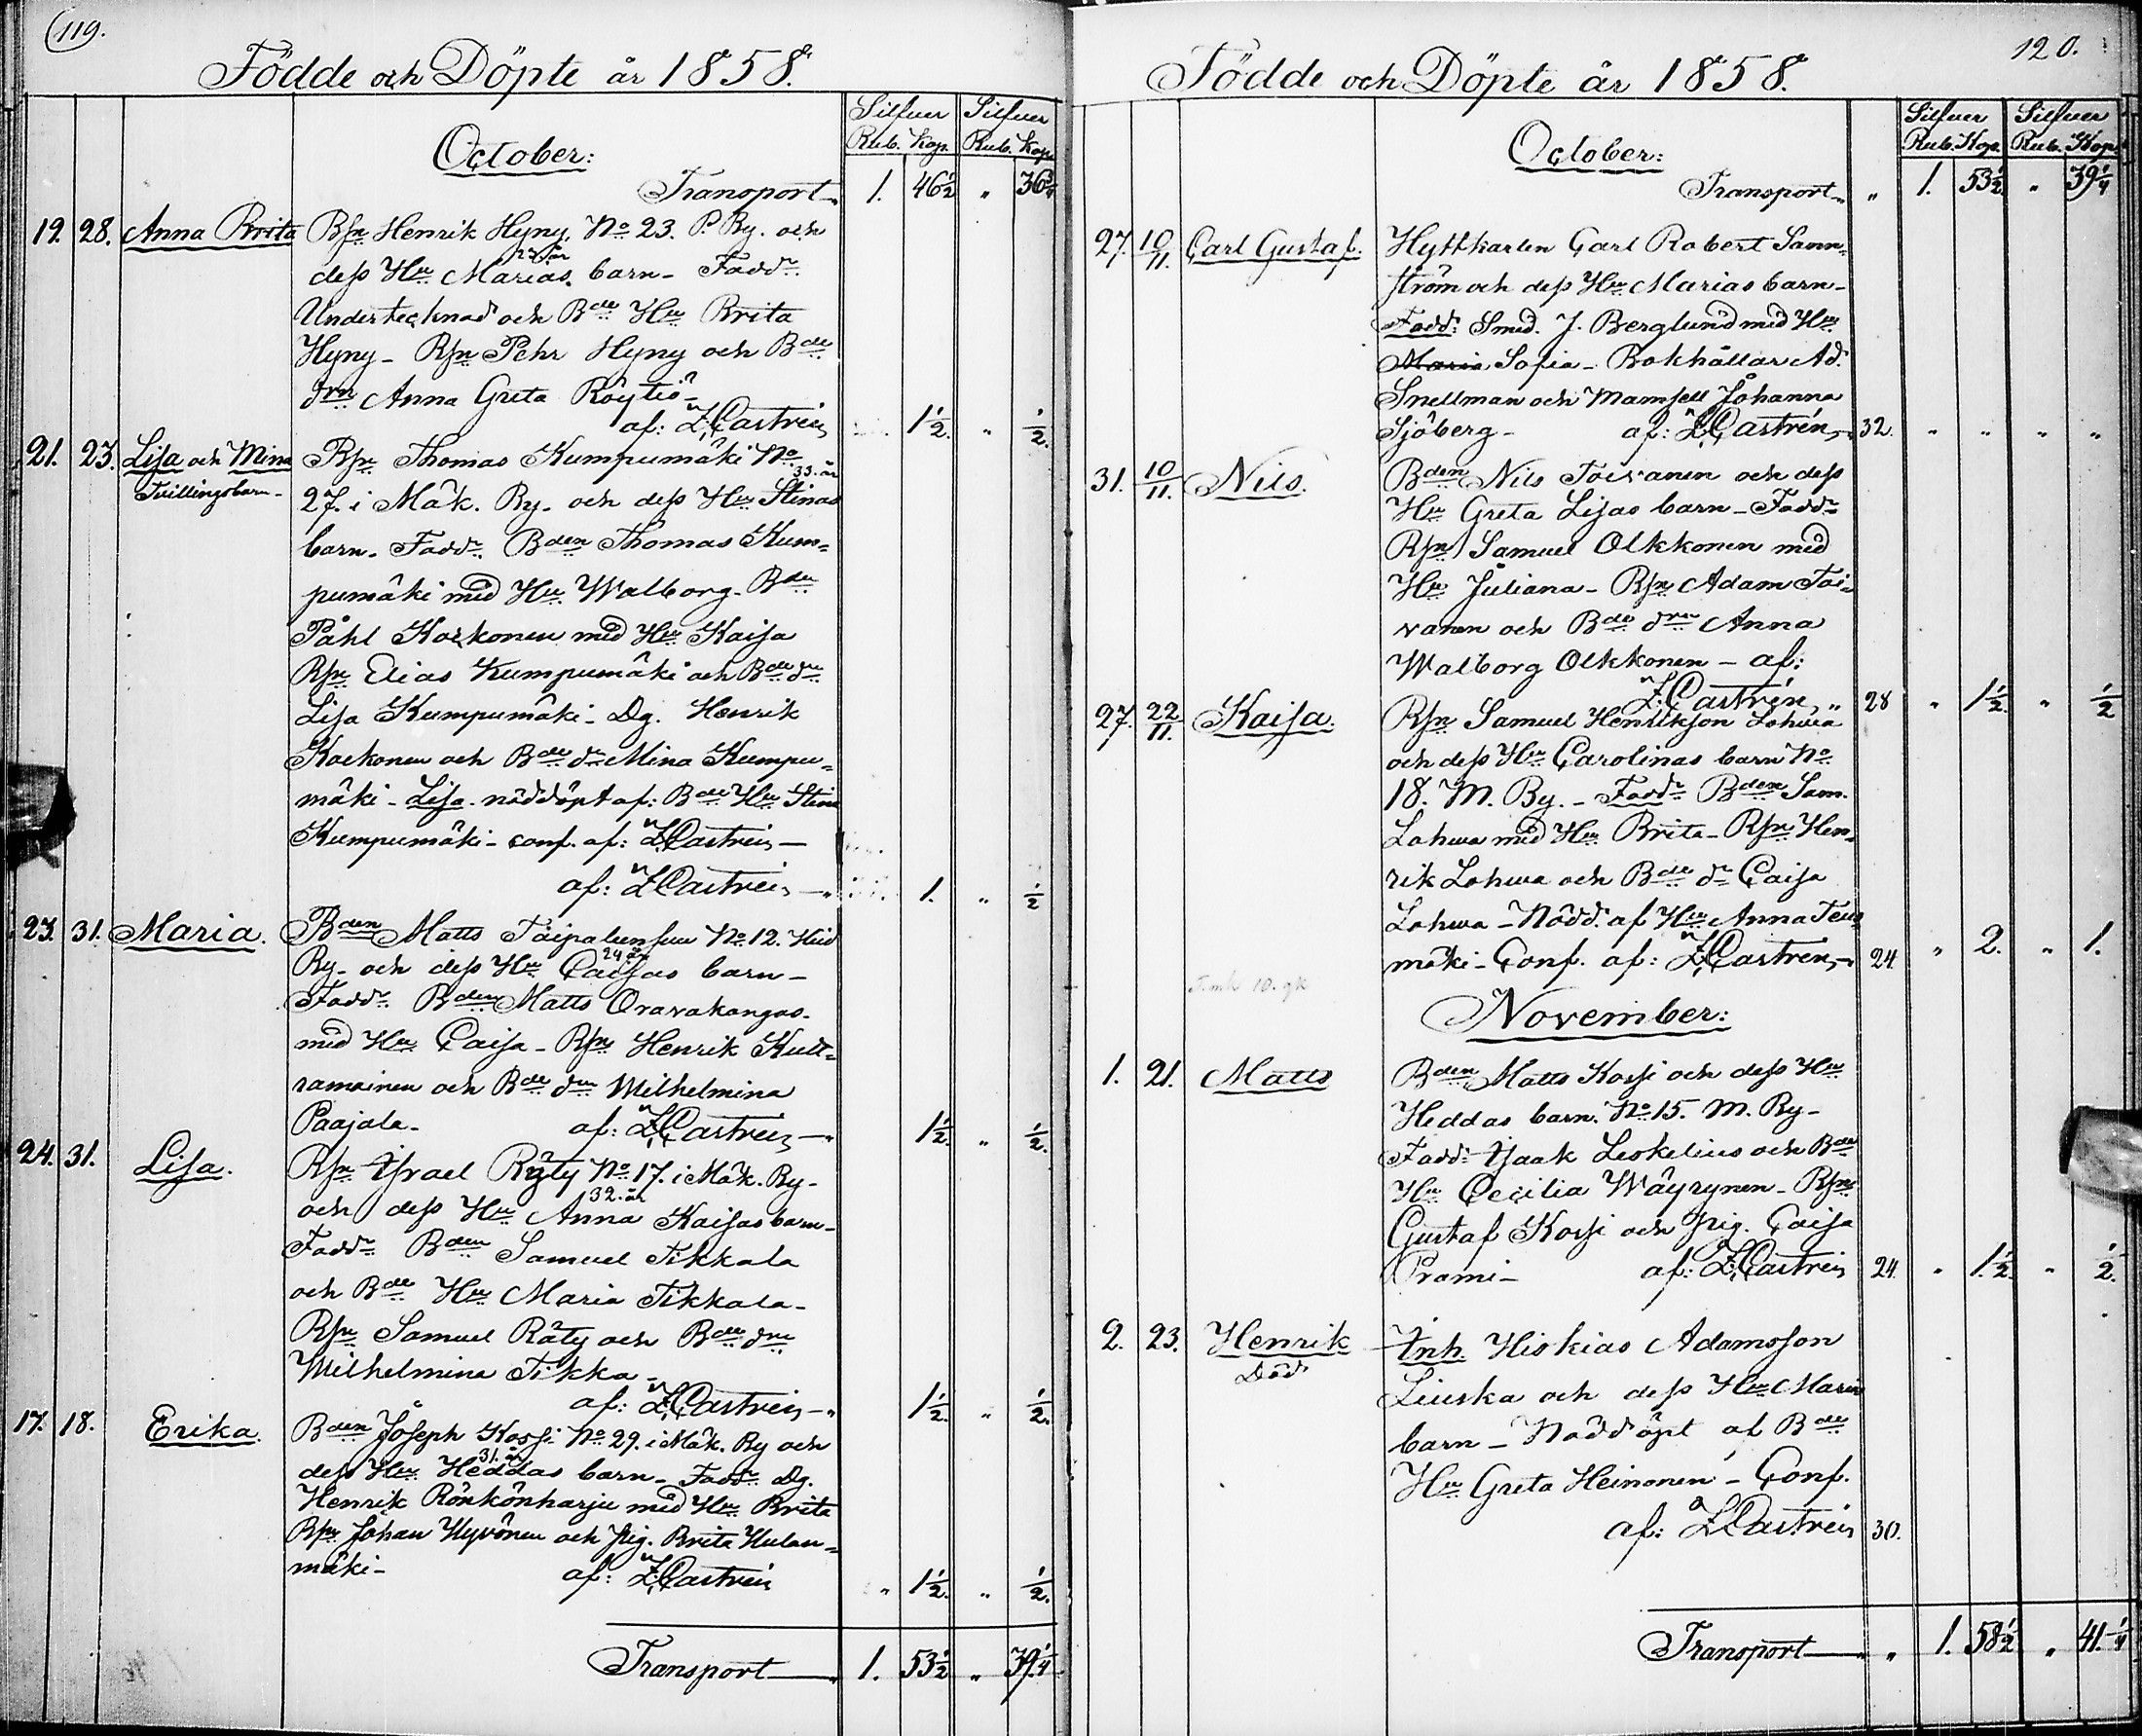 119.
Födde och Döpte år 1858.
Silfver Silfver
Rub. Kop. Rub. Kop.
October:
Transport 1. 46½ " 36¾
19. 28. Anna Brita Bsn Henrik Hyny. No 23. P. By. och
27 år
dess Hu Marias barn - Faddr
Undertecknad och Bde Hu Brita
Hyny - Bsn Pehr Hyny och Bde
drn Anna Greta Röytiö -
af: Z. Castrén 1½ " ½
21. 23. Lisa och Mina Bsn Thomas Kumpumäki No
Tvillingsbarn - 33. år
27. i Mäk. By. och dess Hu Stinas
barn. Faddr Bden Thomas Kum=
pumäki med Hu Walborg - Bde
Påhl Korkonen med Hu Kaisa
Bsn Elias Kumpumäki och Bde dr
Lisa Kumpumäki - Dg. Henrik
Korkonen och Bde dr Mina Kumpu=
mäki - Lisa. nöddöpt af: Bde Hu Stina
Kumpumäki - conf. af: Z. Castrén -
af: Z. Castrén - 1. " ½
23. 31. Maria. Bden Matts No 12.
24 år
By - och dess Hu Caisas barn -
Faddr Bden Matts Oravakangas
med Hu Caisa - Bsn Henrik Kult=
ramainen och Bde drn Wilhelmina
Paajala - af: Z. Castrén - 1½ " ½
24. 31. Lisa. Bsn Israel Räty No 17. i Mäk. By -
32. år
och dess Hu Anna Kaisas barn -
Faddr Bden Samuel Tikkala
och Bde Hu Maria Tikkala -
Bsn Samuel Räty och Bde drn
Wilhelmina Tikka -
af: Z. Castrén - 1½ " ½
17. 18. Erika. Bden Joseph Kossi No 29. i Mäk. By och
31. år
dess Hu Heddas barn - Faddr Dg.
Henrik Rönkönharju med Hu Brita
Bsn Johan Hyvönen och pig. Brita Hulan=
mäki - af: Z. Castrén " 1½ " ½
Transport 1. 53½ " 39¼
120.
Födde och Döpte år 1858.
Silfver Silfver
Rub. Kop. Rub. Kop.
October:
Transport " 1. 53½ " 39¼
27. 10/11. Carl Gustaf. Hyttkarlen Carl Robert Sann=
ström och dess Hu Marias barn -
Fadd: Smed. J. Berglund med Hu
Maria Sofia - Bokhållar Ad.
Snellman och Mamsell Johanna
Sjöberg - af: Z. Castrén - 32. " " " "
31. 10/11. Nils. Bden Nils Toivanen och dess
Hu Greta Lisas barn - Faddr
Bsn Samuel Olkkonen med
Hu Juliana - Bsn Adam Toi=
vanen och Bde drn Anna
Walborg Olkkonen - af:
Z. Castrén " 28 " 1½ " ½
27. 22/11. Kaisa. Bsn Samuel Henrikson Lohwa
och dess Hu Carolinas barn No
18. M. By. - Faddr Bden Sam.
Lohwa med Hu Brita - Bsn Hen=
rik Lohwa och Bde dr Caisa
Lohwa - Nödd. af Hu Anna
mäki - Conf. af: Z. Castrén - 24. " 2. " 1.
November:
1. 21. Matts Bden Matts Kossi och dess Hu
Heddas barn. No 15. M. By -
Fadd: Isaak Leskelius och Bde
Hu Cecilia Wäyrynen - Bsn
Gustaf Kossi och pig. Caisa
Prami - af: Z. Castrén 24. " 1½ " ½
2. 23. Henrik Inh. Hiskias Adamsson
Död
Liuska och dess Hu Maria
barn - Nöddöpt af Bde
Hu Greta Heinonen - Conf.
af: Z. Castrén 30.
Transport " 1. 58½ " 41.¼